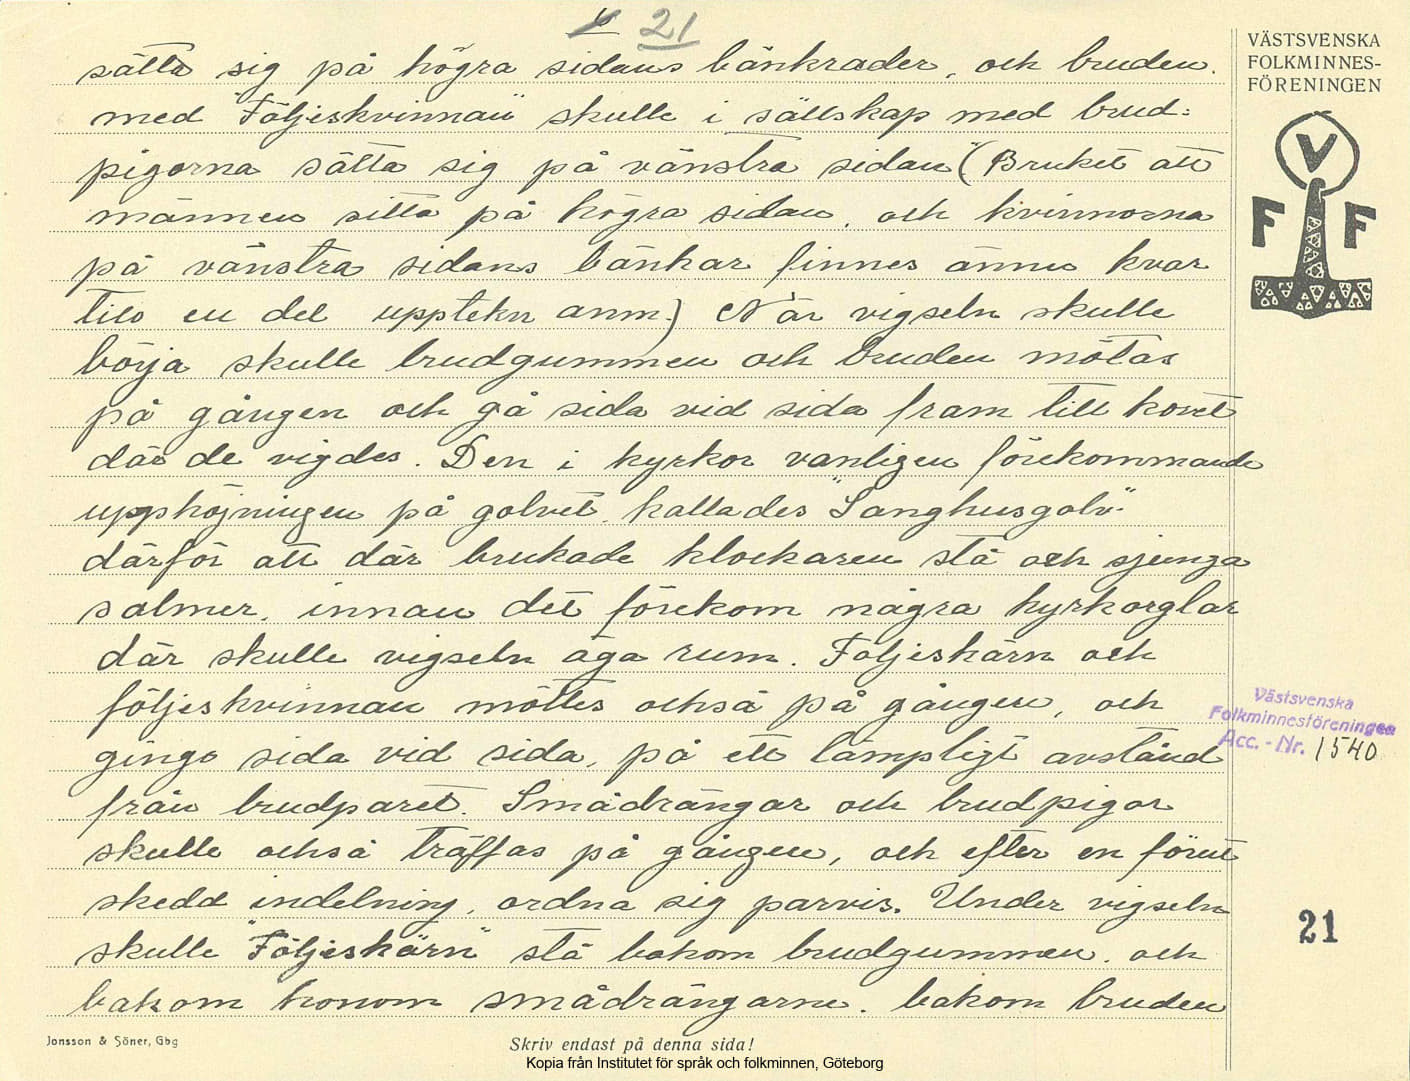 21
sätta sig på högra sidans bänkrader, och bruden
med "Följeskvinnan" skulle i sällskap med brud-
pigorna sätta sig på vänstra sidan (Bruket att
männen sitta på högra sidan, och kvinnorna
på vänstra sidans bänkar finnes ännu kvar
till en del upptekn anm.) När vigseln skulle
börja skulle brudgummen och bruden mötas
på gången och gå sida vid sida fram till koret
där de vigdes. Den i kyrkor vanligen förekommande
upphöjningen på golvet, kallades "Sanghusgolv"
därför att där brukade klockaren stå och sjunga
salmer, innan det förekom några kyrkorglar
där skulle vigseln äga rum. Följeskärn och
följeskvinnan möttes också på gången, och
gingo sida vid sida, på ett lämpligt avstånd
från brudparet. Smådrängar och brudpigor
skulle också träffas på gången, och efter en förut
skedd indelning, ordna sig parvis. Under vigseln
skulle "Följeskärn" stå bakom brudgummen, och
bakom honom smådrängarne. bakom bruden
VÄSTSVENSKA
FOLKMINNES-
FÖRENINGEN
V
F F
Västsvenska
Folkminnesföreningen
Acc.-Nr. 1540
21
Jonsson & Söner, Gbg
Skriv endast på denna sida!
Kopia från Institutet för språk och folkminnen, Göteborg